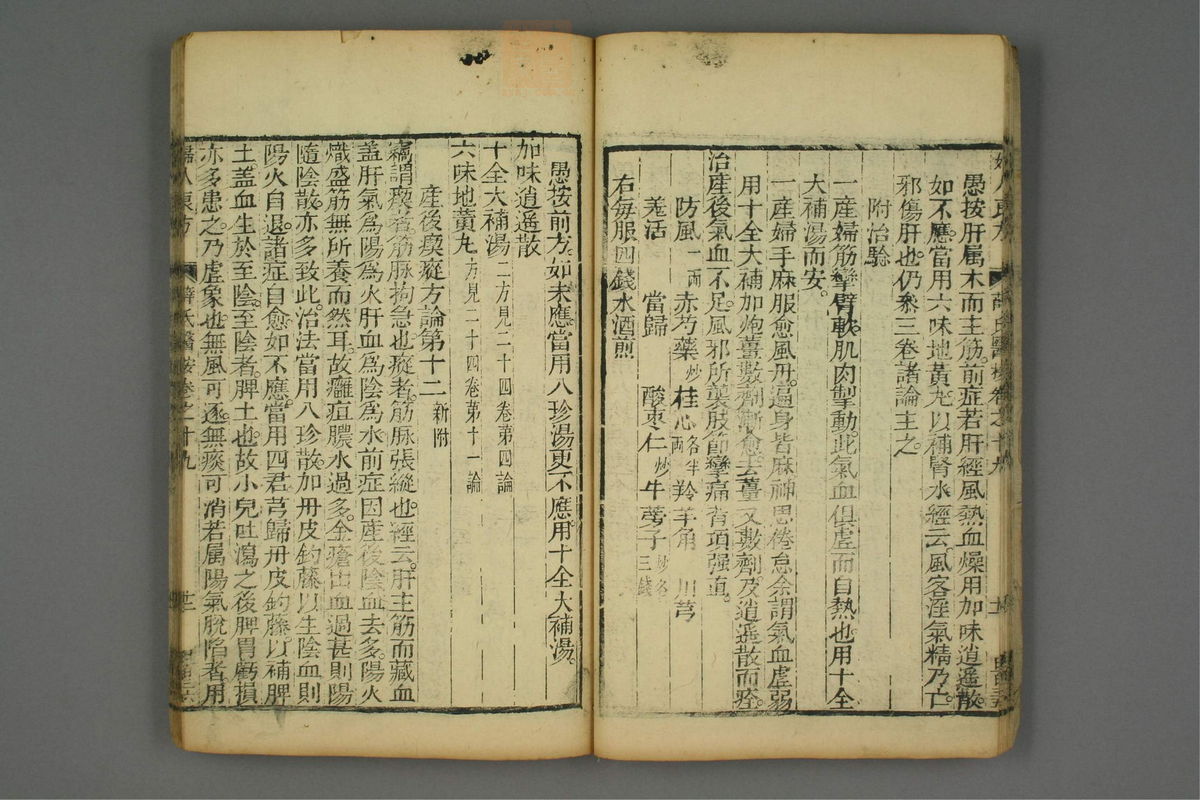 愚按肝属木而主筋。前症若肝經風熱血燥用加味逍遥散。
如不應當用六味地黄丸以補腎水經云。風客淫氣精乃亡。
邪傷肝也。仍叅三卷諸論主之。
附治驗
一産婦筋攣臂軟。肌肉掣動。此氣血俱虚而自熱也。用十全
大補湯而安。
一産婦手麻服愈風丹。遍身皆麻神思倦怠余謂氣血虚弱
用十全大補加炮薑數劑漸愈去薑又數劑及逍遥散而痊。
治産後氣血不足。風邪所襲。肢節攣痛。背項强直。
防風一兩 赤芍藥炒 桂心各半兩 羚羊角 川芎
羗活 當歸 酸棗仁炒 牛蒡子炒各三錢
右每服四錢水酒煎
愚按前方。如未應當用八珍湯。更不應。用十全大補湯。
加味逍遥散
十全大補湯二方見二十四卷第四論
六味地黄丸方見二十四卷第十一論
産後瘈瘲方論第十二新附
竊謂瘈者筋脉拘急也瘲者。筋脉張縱也。經云。肝主筋而藏血
盖肝氣爲陽爲火肝血爲陰爲水前症因産後陰血去多。陽火
熾盛筋無所養而然耳。故癰疽膿水過多。金瘡出血過甚則陽
隨陰散亦多致此。治法當用八珍散。加丹皮鈎藤以生陰血則
陽火自退。諸症自愈如不應當用四君芎歸丹皮鈎藤。以補脾
土。盖血生於至陰。至陰者。脾土也。故小兒吐瀉之後脾胃虧損
亦多患之。乃虚象也。無風可逐。無痰可消若属陽氣脫陷者用
婦人良方 薛氏醫按卷之十九